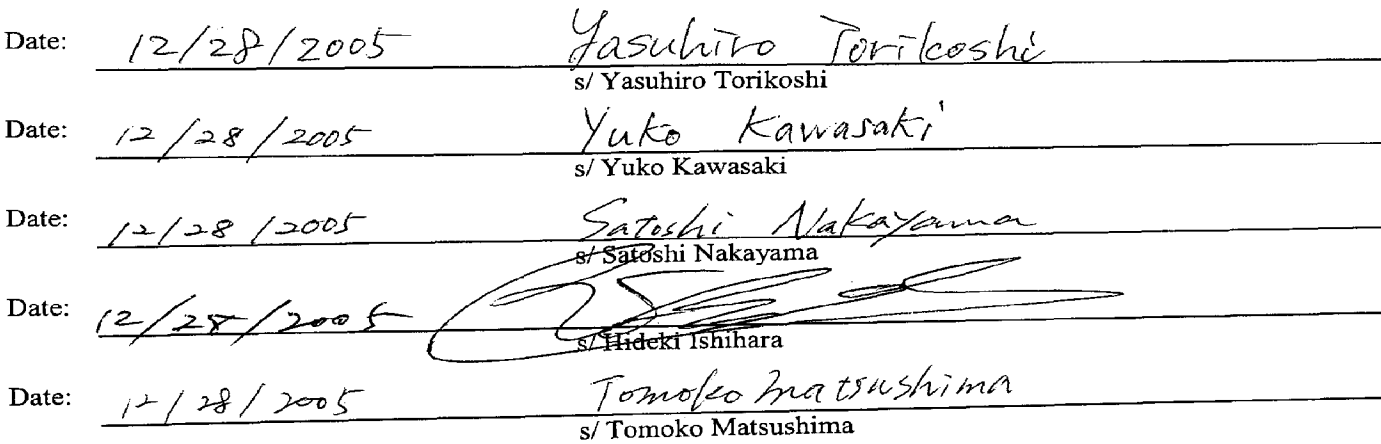 Date: 12/28/2005 Yasuhiro Torikoshi
s/ Yasuhiro Torikoshi
Date: 12/28/2005 Yuko Kawasaki
s/ Yuko Kawasaki
Date: 12/28/2005 Satoshi Nakayama
s/ Satoshi Nakayama
Date: 12/28/2005
s/ Hideki Ishihara
Date: 12/28/2005 Tomoko Matsushima
s/ Tomoko Matsushima